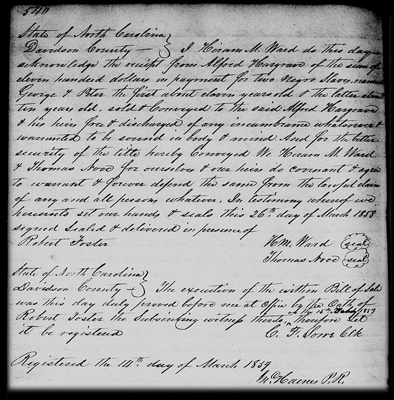 540
State of North Carolina }
Davidson County — } I Hiram M. Ward do this day
acknowledge the receipt from Alfred Hargrave of the sum of
eleven hundred dollars in payment for two negro Slaves, named
George & Peter the first about eleven years old & the latter about
ten years old, sold & conveyed to the said Alfred Hargrave
& his heirs free & discharged of any incumbrance whatsoever &
warranted to be sound in body & mind And for the better
security of the title hereby Conveyed We Hiram M. Ward
& Thomas Nooe for ourselves & our heirs do covenant & agree
to warrant & forever defend the same from the lawful claim
of any and all persons whatever. In testimony whereof we
hereunto set our hands & seals this 26th day of March 1858
signed sealed & delivered in presence of
Robert Foster H.M. Ward (seal)
Thomas Nooe (seal)
State of North Carolina }
Davidson County — } The execution of the within Bill of Sale
was this day duly proved before me at office by the Oath of
Robert Foster the Subscribing witness thereto, Therefore let
it be registered C. F. Lowe Clk
Registered the 14th day of March 1859
W. Haines P.R.